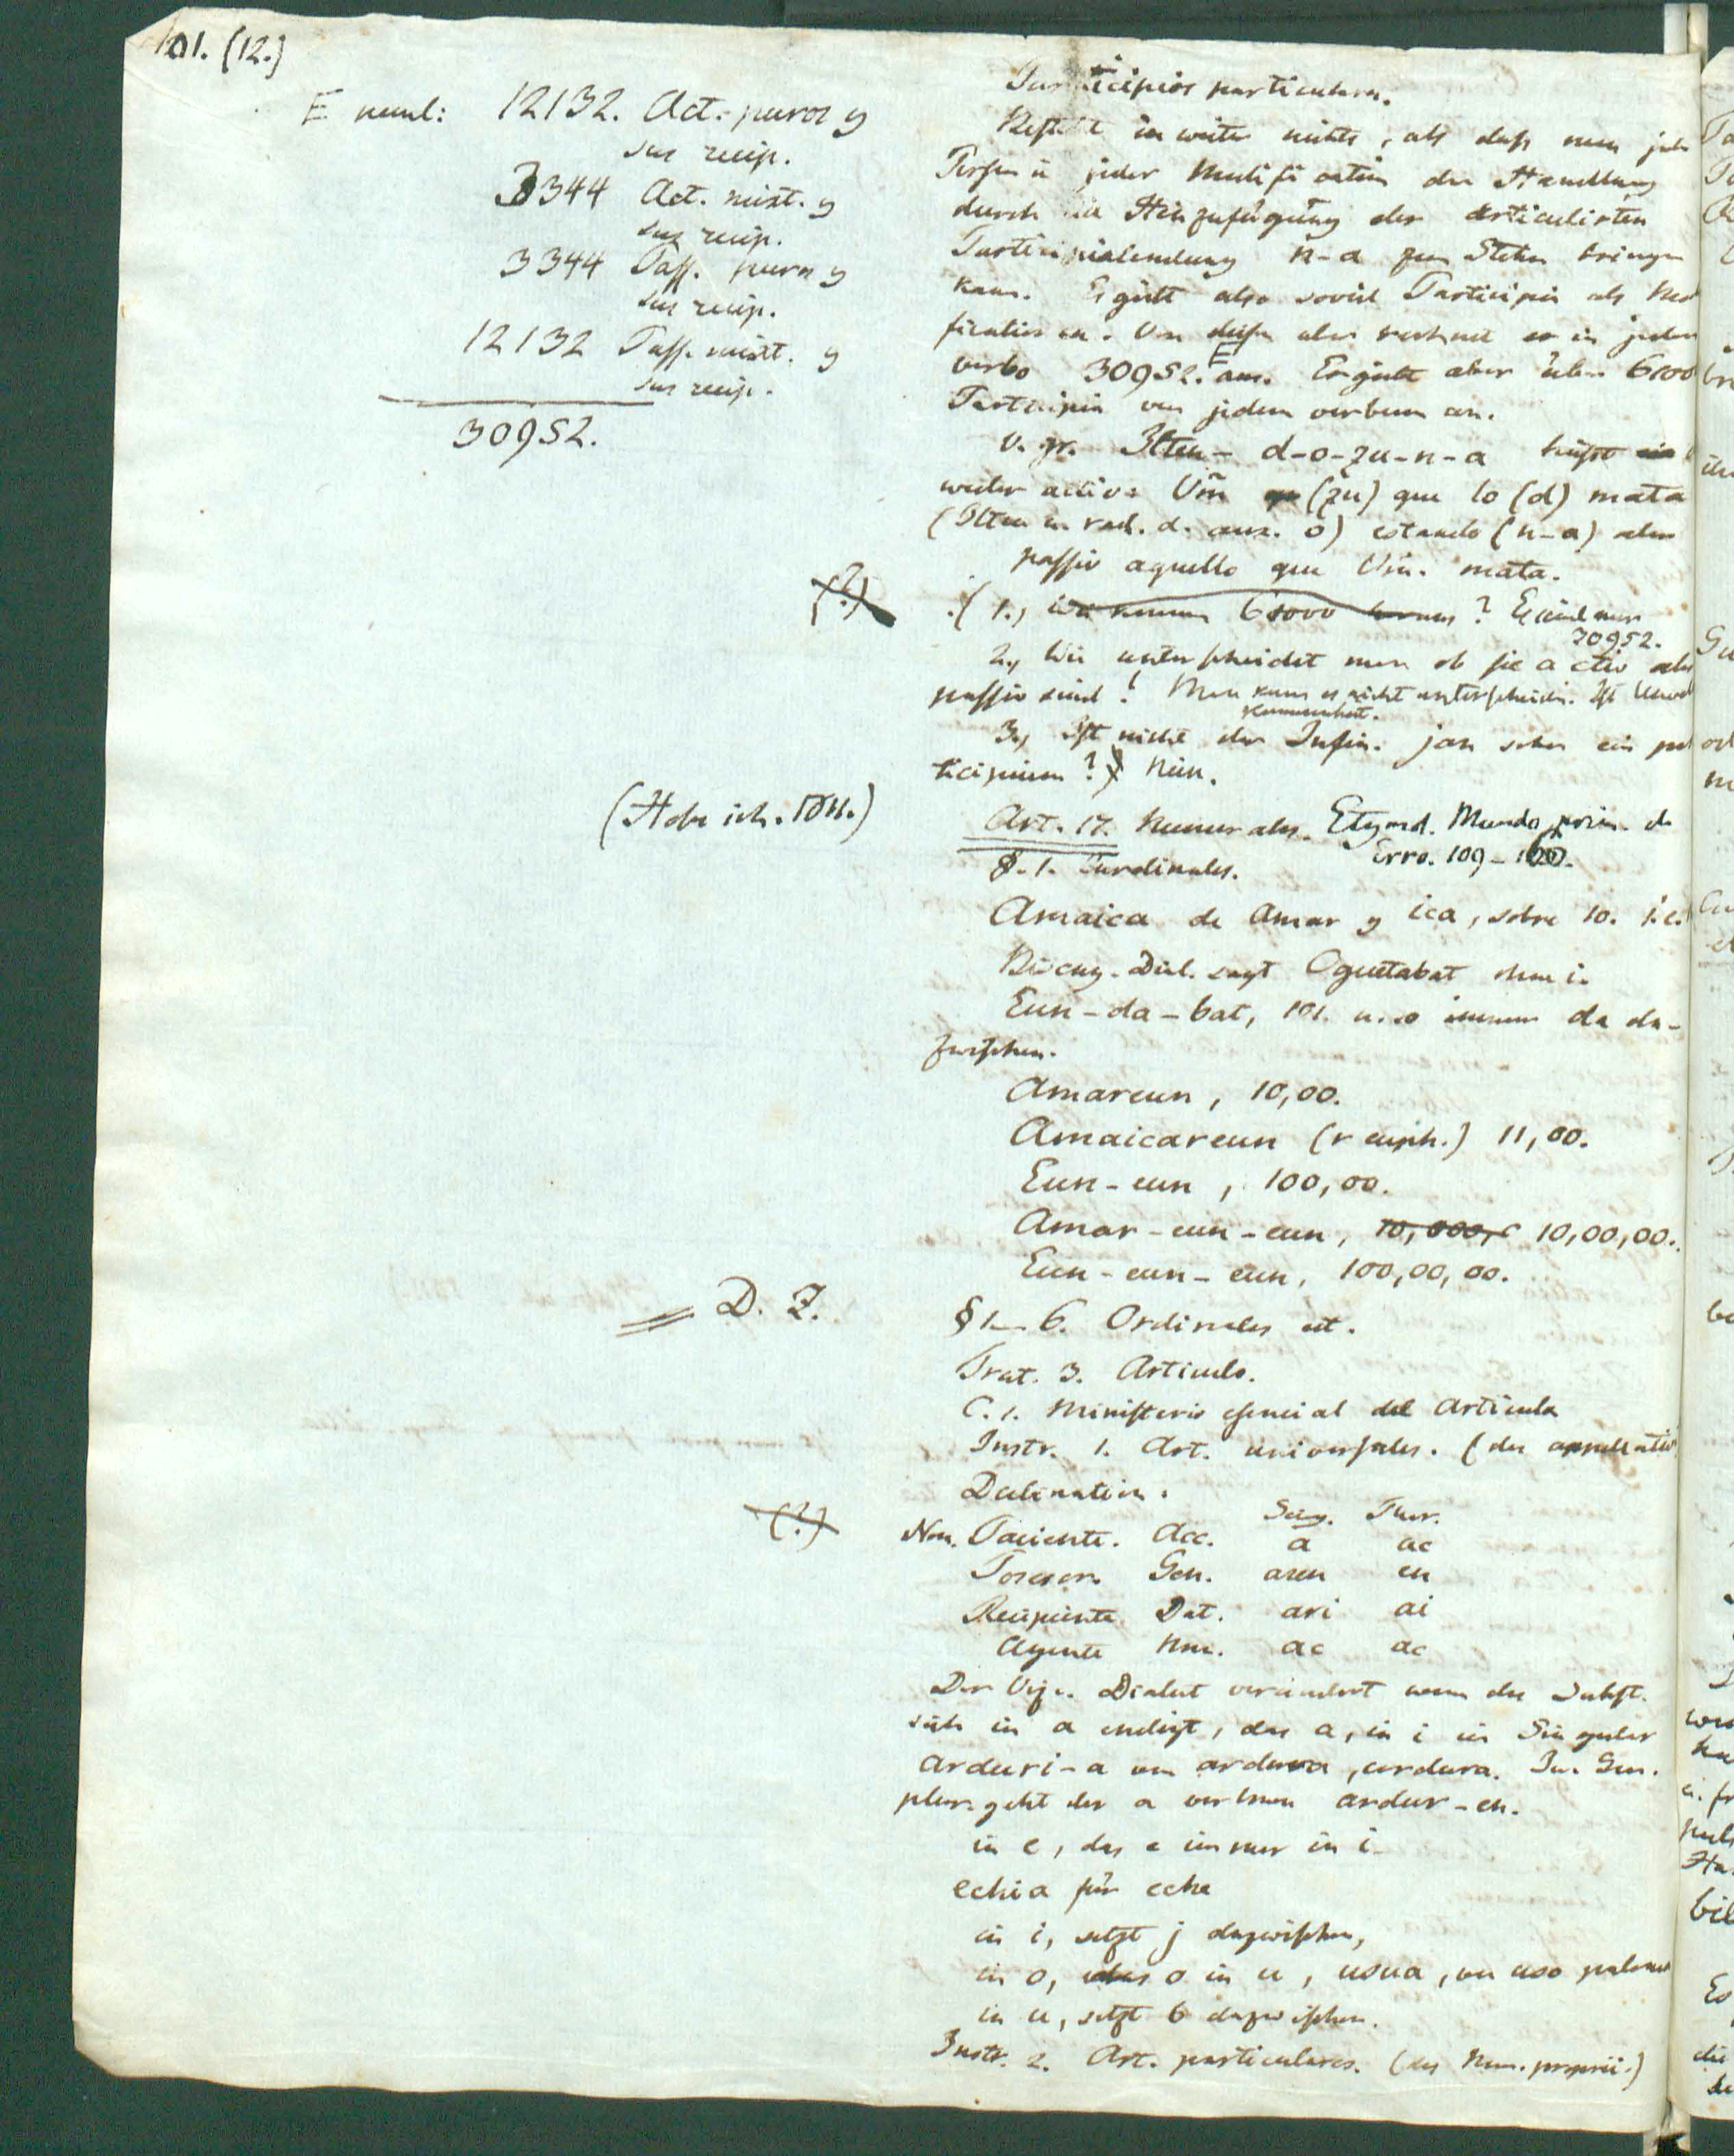 101. (12.)
E neml: 12132. Act. puros y
sus recip.
3344 Act. mixt. y
sus recip.
3344 Pass. puros y
sus recip.
12132 Pass. mixt. y
sus recip.
30952.
Participios particulares.
Besteht in weiter nichts, als dass man jede
Person u jeder Modification der Handlung
durch die Hinzufügung der articulirten
Participialendung n-a zum Stehn bringen
kann. Es giebt also soviel Participia als
. Von diesen aber rechnet er in jedem
verbo 30952. E an. Er giebt aber über
Participia von jedem verbum an.
v. gr. Ilten-d-o-zu-n-a heisst
weder activ: Vm̃ (zu) que lo (d) mata
(Ilten d. aux. o) estando (n-a) oder
passiv aquello que Vm̃. mata.
(?)
(1., Wie kommen 6000 heraus? Es sind nur
30952.
2., Wie unterscheidet man ob sie activ oder
passiv sind? Man kann es nicht unterscheiden. Ist
3., Ist nicht der Infin. jan schon ein par
ticipium?) Nein.
(Habe ich.)
Art. 17. Numerales. Etymol. Mundo prim. de
Erro. 109-
§. 1. Cardinales.
Amaica de Amar y ica, sobre 10. i.e.
Biscay. Dial. sagt Oguetabat ohne i.
Eun-da-bat, 101. u. so immer da da-
zwischen.
Amareun, 10,00.
Amaicareun (r euph.) 11,00.
Eun-eun, 100,00.
Amar-eun-eun, 10,000, 10,00,00.
Eun-eun-eun, 100,00,00.
= D. Z.
§ 1-6. Ordinales cet.
Trat. 3. Articulo.
C. 1. Ministerio esencial del Articulo
Instr. 1. Art. universales. (der appellativ
Declination.
Sing. Plur.
(?)
Nom. Paciente. Acc. a ac
Poseson. Gen. aren en
Recipiente Dat. ari ai
Agente Nom. ac ac
Der Vizc. Dialect verändert wenn das Subst.
sich in a endigt, das a, in i im Singular
arduri-a von ardura, cordura. Im Gen.
plur. geht das a verloren ardur-en.
in e, das e immer in i
echia für eche
in i, setzt j dazwischen,
in o, das o in u, usua, von uso
in u, setzt b dazwischen.
Instr. 2. Art. particulares. (der Nom. proprii.)